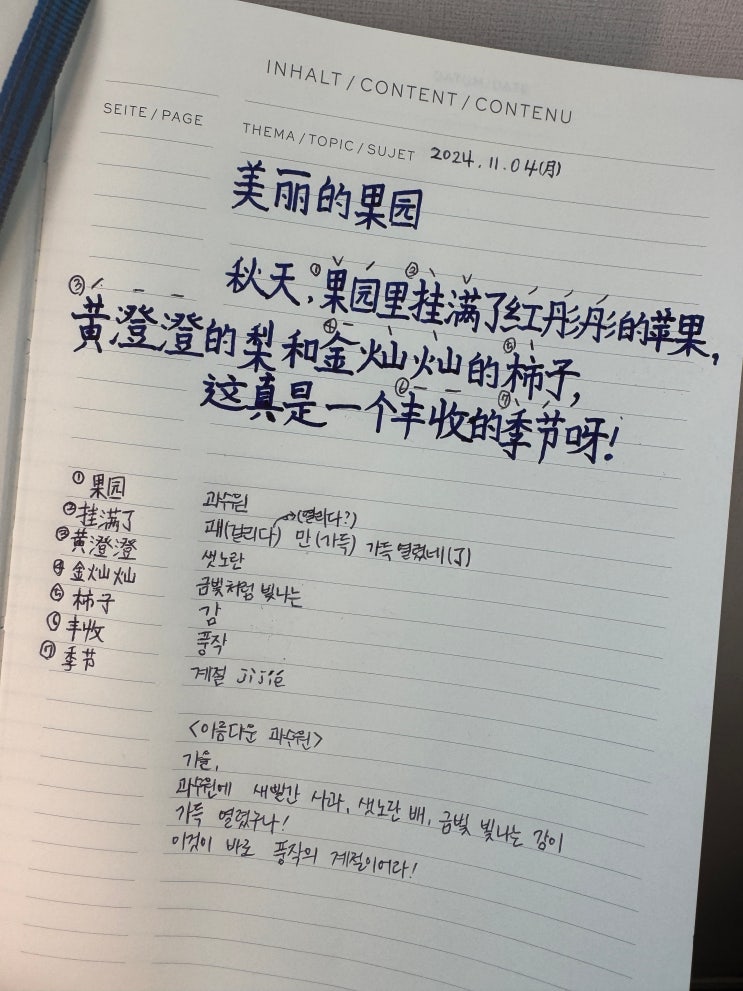 INHALT / CONTENT / CONTENU
SEITE / PAGE
THEMA / TOPIC / SUJET 2024.11.04(月)
美丽的果园
秋天,①果园里②挂满了红彤彤的苹果,
③黄澄澄的梨和④金灿灿的⑤柿子,
这真是一个⑥丰收的⑦季节呀!
①果园 과수원
②挂满了 괘(걸리다)→(열리다?) 만(가득) 가득 열렸네(了)
③黄澄澄 샛노란
④金灿灿 금빛처럼 빛나는
⑤柿子 감
⑥丰收 풍작
⑦季节 계절 jìjié
<아름다운 과수원>
가을,
과수원에 새빨간 사과, 샛노란 배, 금빛 빛나는 감이
가득 열렸구나!
이것이 바로 풍작의 계절이어라!